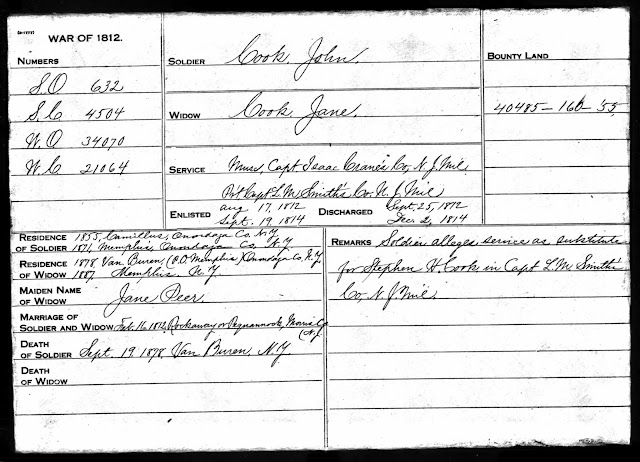 WAR OF 1812.
NUMBERS
S.O 632
S.C 4504
W.O 34070
W.C 21064
SOLDIER Cook, John.
WIDOW Cook, Jane.
SERVICE Mus, Capt Isaac Crane's Co, N.J. Mil
Pvt Capt L.M. Smith's Co. N.J. Mil
ENLISTED aug 17, 1812 DISCHARGED Sept, 25, 1812
Sept. 19, 1814 Dec 2, 1814
BOUNTY LAND
40485-160-55,
RESIDENCE OF SOLDIER 1855, Camillus, Onondaga Co. N.Y.
1871, Memphis, Onondaga Co, N.Y.
RESIDENCE OF WIDOW 1878, Van Buren, (P.O. Memphis) Onondaga Co, N.Y.
1887, Memphis, N.Y.
MAIDEN NAME OF WIDOW Jane Peer.
MARRIAGE OF SOLDIER AND WIDOW Feb. 16, 1812, Rockaway or Pequannock, Morris Co
(N.J.
DEATH OF SOLDIER Sept. 19, 1878, Van Buren, N.Y.
DEATH OF WIDOW
REMARKS Soldier alleges service as substitute
for Stephen H. Cook in Capt L.M. Smith's
Co, N.J. Mil.